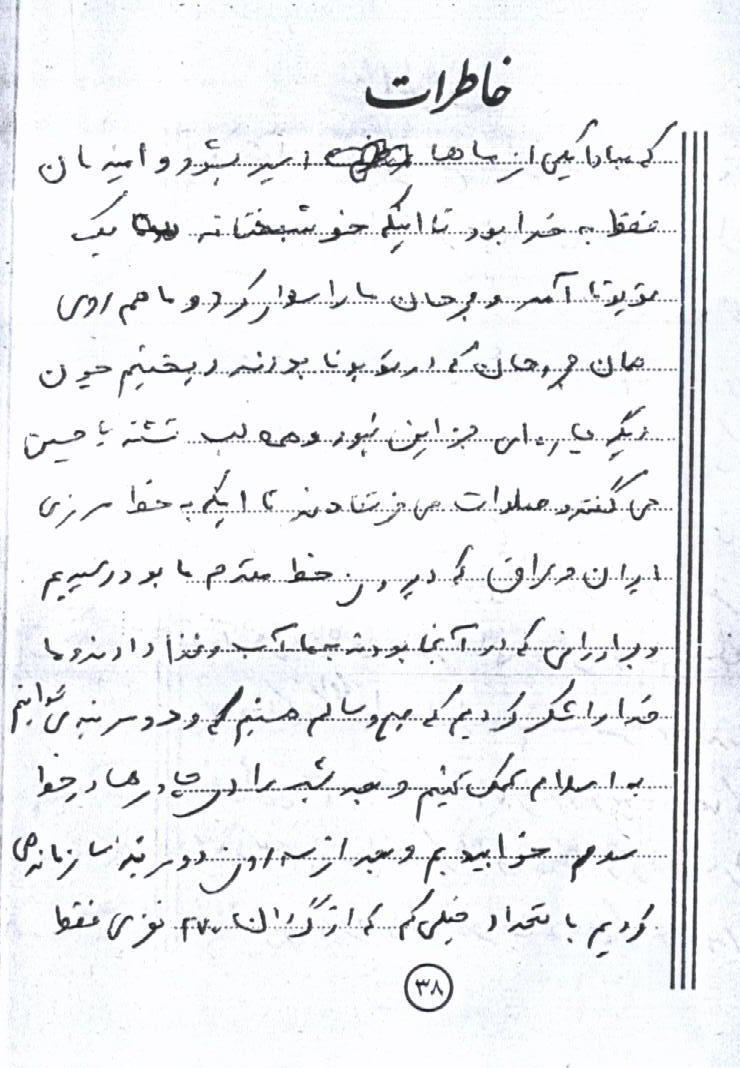 خاطرات
که مبادا یکی از ماها اسیر بشود و امیدمان
فقط به خدا بود تا اینکه خوشبختانه یک
تویوتا آمد و مجروحان ما را سوار کرد و ما هم روی
همان مجروحان که در تویوتا بودند ریختیم چون
دیگر چاره‌ای جز این نبود و همه لب تشنه یا حسین
می گفتند و صلوات می فرستادند تا اینکه به خط مرزی
ایران و عراق که در پی خط مقدم ما بود رسیدیم
و برادرانی که در آنجا بودند بما آب و غذا دادند و ما
خدا را شکر کردیم که صحیح و سالم هستیم و دو مرتبه می توانیم
به اسلام کمک کنیم و بعد شب را در چادرها در خط
سوم خوابیدیم و بعد از سه روز دو مرتبه سازماندهی
کردیم با تعداد خیلی کم که از گردان ۲۷۰ نفری فقط
۳۸